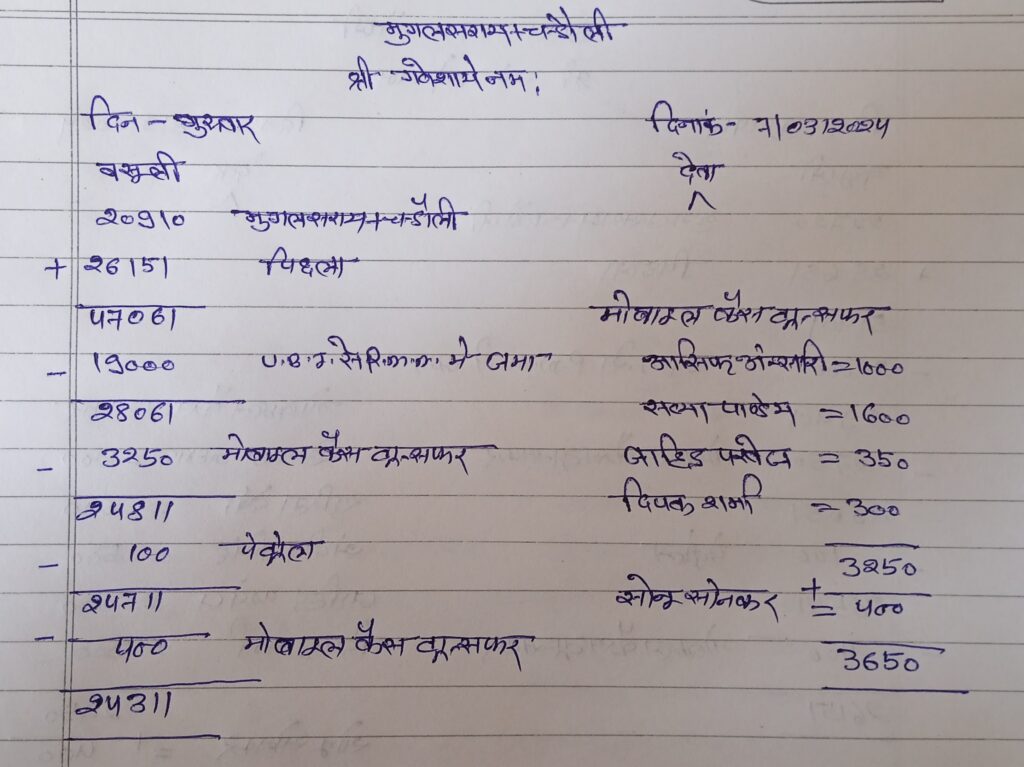 मुगलसराय+चन्डौली
श्री गणेशाये नम:
दिन - गुरुवार दिनांक- 7/03/2024
वसूली देता
20910 मुगलसराय+चन्डौली
+ 26151 पिछला
47061 मोबाइल कैस ट्रान्सफर
- 19000 जमा आसिफ अंन्सारी = 1000
28061 पाण्डेय = 1600
- 3250 मोबाइल कैस ट्रान्सफर = 350
24811 दिपक शर्मा = 300
- 100 पेट्रोल 3250
24711 सोनू सोनकर + = 400
- 400 मोबाइल कैस ट्रान्सफर 3650
24311